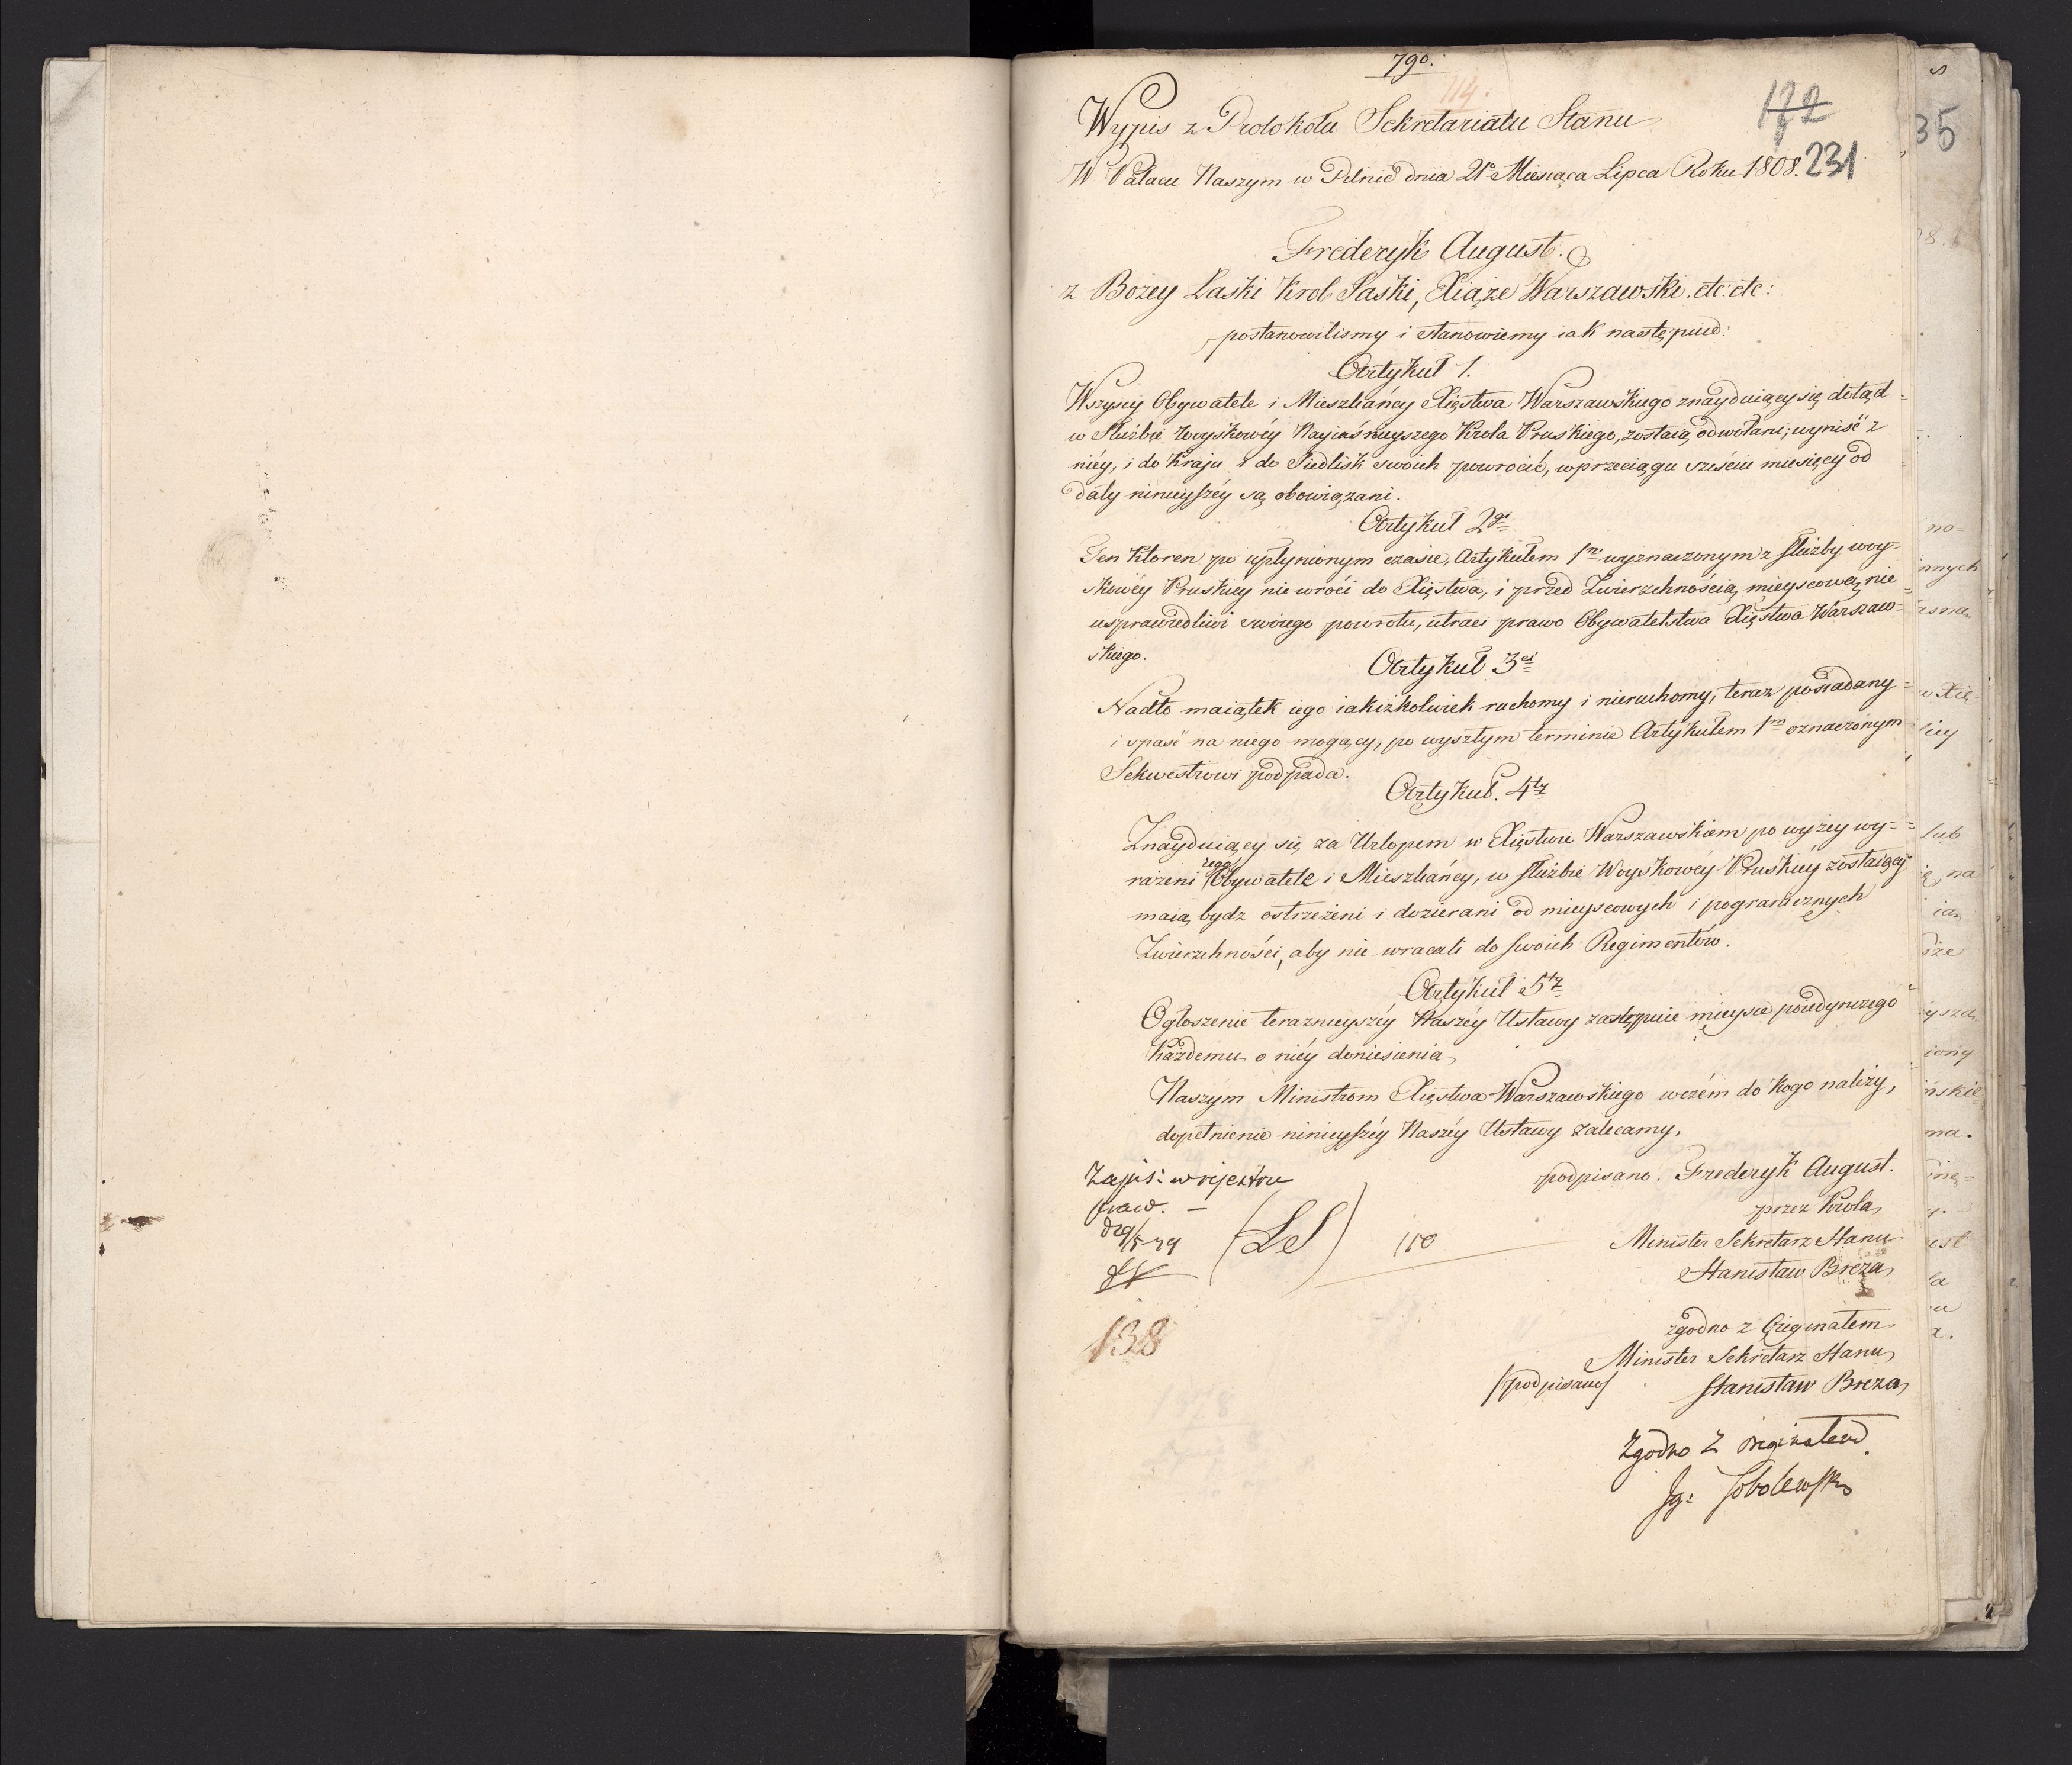 790.
114.
172
Wypis z Protokołu Sekretariatu Stanu
W Pałacu Naszym w Pilnic dnia 21o Miesiąca Lipca Roku 1808.
231
Frederyk August.
z Bożey Łaski Krol Saski, Xiąże Warszawski. etc: etc:
postanowilismy i stanowiemy iak następuie:
Artykuł 1.
Wszyscy Obywatele i Mieszkańcy Xięstwa Warszawskiego znayduiący się dotąd
w Służbie woyskowéy Nayiaśnieyszego Krola Pruskiego, zostaią odwołani; wyniść z
niéy, i do Kraju i do Siedlisk swoich powrocić, w przeciągu sześciu miesięcy od
daty ninieyszéy są obowiązani.
Artykuł 2gi
Ten ktoren po upłynionym czasie, Artykułem 1m wyznaczonym z służby woy=
skowéy Pruskiey nie wróci do Xięstwa, i przed Zwierzchnością mieyscową nie
usprawiedliwi swoiego powrotu, utraci prawo Obywatelstwa Xięstwa Warszaw=
skiego.
Artykuł 3ci
Nadto maiątek iego iakiżkolwiek ruchomy i nieruchomy, teraz posiadany
i spaść na niego mogący, po wyszłym terminie Artykułem 1m oznaczonym
Sekwestrowi podpada.
Artykuł. 4ty
Znayduiący się za Urlopem w Xięstwie Warszawskiem powyżey wy=
rażeni Obywatele i Mieszkańcy, w służbie Woyskowéy Pruskiéy zostaiący
maią bydz ostrzeżeni i dozierani od mieyscowych i pogranicznych
Zwierzchności, aby nie wracali do swoich Regimentów.
Artykuł 5ty
Ogłoszenie teraznieyszéy Naszéy Ustawy zastępuie mieysce poiedynczego
każdemu o niéy doniesienia
Naszym Ministrom Xięstwa Warszawskiego w czém do kogo należy,
dopełnienie ninieyszéy Naszéy Ustawy zalecamy.
Zapis: w rejestru
praw. —
podpisano. Frederyk August.
przez Krola
(LS)
110
Minister Sekretarz Stanu
Stanisław Breza
138
zgodno z Oryginałem
Minister Sekretarz Stanu
/podpisano/ Stanisław Breza
Zgodno z oryginałem
Ig: Sobolewski
35